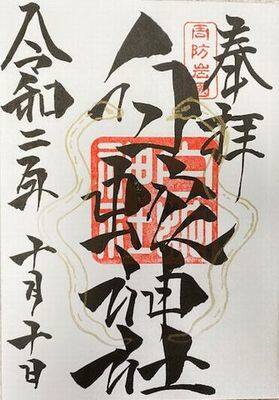 奉拝
周防岩国
白蛇神社
白蛇神社
令和二年
十月十日